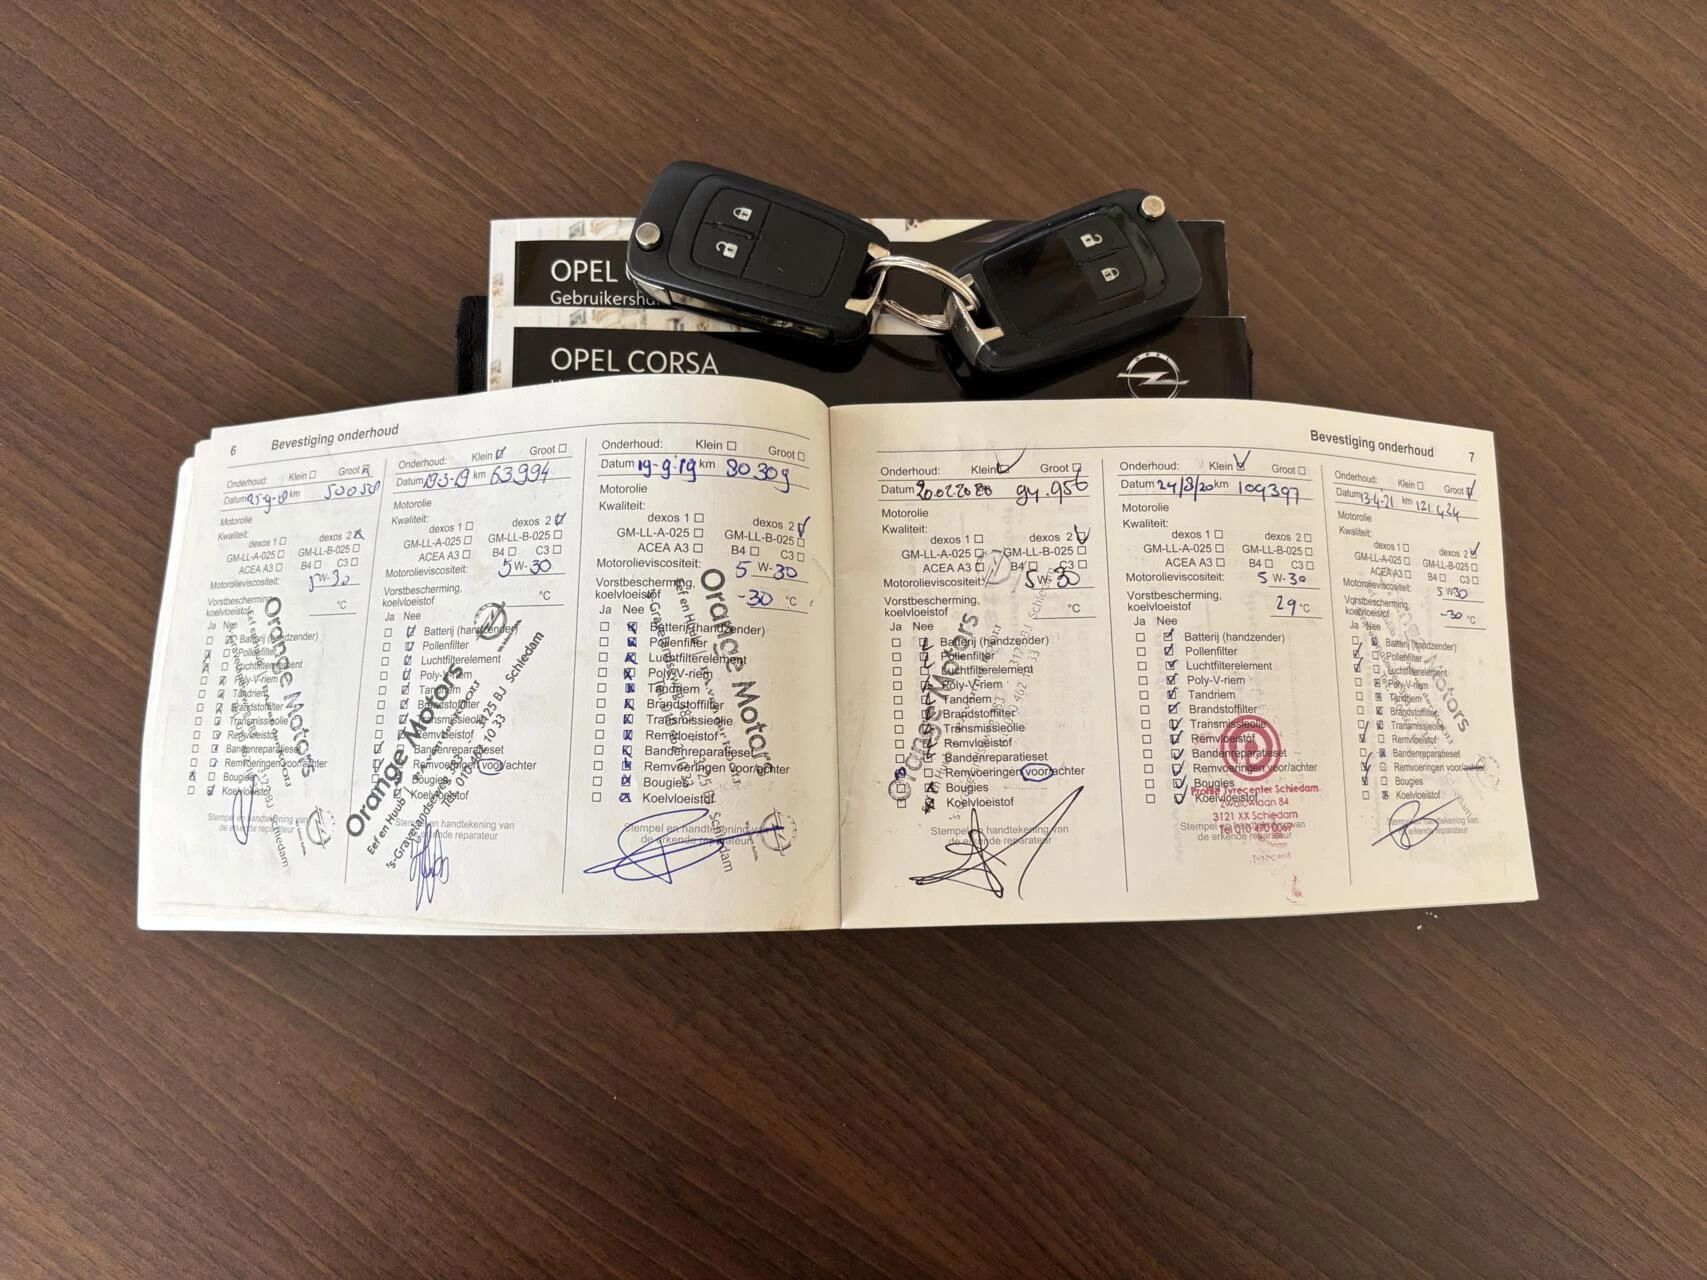 OPEL
OPEL CORSA
OPEL
6 Bevestiging onderhoud
Onderhoud: Klein Groot
Datum km 50050
Motorolie
Kwaliteit:
dexos 1 dexos 2
GM-LL-A-025 GM-LL-B-025
ACEA A3 B4 C3
Motorolieviscositeit: 5 W-30
Vorstbescherming,
koelvloeistof °C
Ja Nee
Batterij (handzender)
Pollenfilter
Luchtfilterelement
Poly-V-riem
Tandriem
Brandstoffilter
Transmissieolie
Remvloeistof
Bandenreparatieset
Remvoeringen voor/achter
Bougies
Koelvloeistof
Stempel en handtekening van
de erkende reparateur
Orange Motors
Onderhoud: Klein Groot
Datum 19-3-19 km 63.994
Motorolie
Kwaliteit:
dexos 1 dexos 2
GM-LL-A-025 GM-LL-B-025
ACEA A3 B4 C3
Motorolieviscositeit: 5 W-30
Vorstbescherming,
koelvloeistof °C
Ja Nee
Batterij (handzender)
Pollenfilter
Luchtfilterelement
Poly-V-riem
Tandriem
Brandstoffilter
Transmissieolie
Remvloeistof
Bandenreparatieset
Remvoeringen voor/achter
Bougies
Koelvloeistof
Stempel en handtekening van
de erkende reparateur
Orange Motors
Schiedam
Onderhoud: Klein Groot
Datum 19-9-19 km 80.309
Motorolie
Kwaliteit:
dexos 1 dexos 2
GM-LL-A-025 GM-LL-B-025
ACEA A3 B4 C3
Motorolieviscositeit: 5 W-30
Vorstbescherming,
koelvloeistof -30 °C
Ja Nee
Batterij (handzender)
Pollenfilter
Luchtfilterelement
Poly-V-riem
Tandriem
Brandstoffilter
Transmissieolie
Remvloeistof
Bandenreparatieset
Remvoeringen voor/achter
Bougies
Koelvloeistof
Stempel en handtekening van
de erkende reparateur
Orange Motors
Schiedam
Bevestiging onderhoud 7
Onderhoud: Klein Groot
Datum 20.02.20 km 94.956
Motorolie
Kwaliteit:
dexos 1 dexos 2
GM-LL-A-025 GM-LL-B-025
ACEA A3 B4 C3
Motorolieviscositeit: 5 W-30
Vorstbescherming,
koelvloeistof °C
Ja Nee
Batterij (handzender)
Pollenfilter
Luchtfilterelement
Poly-V-riem
Tandriem
Brandstoffilter
Transmissieolie
Remvloeistof
Bandenreparatieset
Remvoeringen voor/achter
Bougies
Koelvloeistof
Stempel en handtekening van
de erkende reparateur
Orange Motors
Onderhoud: Klein Groot
Datum 24/8/20 km 109397
Motorolie
Kwaliteit:
dexos 1 dexos 2
GM-LL-A-025 GM-LL-B-025
ACEA A3 B4 C3
Motorolieviscositeit: 5 W-30
Vorstbescherming,
koelvloeistof 29 °C
Ja Nee
Batterij (handzender)
Pollenfilter
Luchtfilterelement
Poly-V-riem
Tandriem
Brandstoffilter
Transmissieolie
Remvloeistof
Bandenreparatieset
Remvoeringen voor/achter
Bougies
Koelvloeistof
Profile Tyrecenter Schiedam
84
3121 XX Schiedam
Tel 010 470 0069
Stempel en handtekening van
de erkende reparateur
Onderhoud: Klein Groot
Datum 13-4-21 km 121.424
Motorolie
Kwaliteit:
dexos 1 dexos 2
GM-LL-A-025 GM-LL-B-025
ACEA A3 B4 C3
Motorolieviscositeit: 5 W-30
Vorstbescherming,
koelvloeistof -30 °C
Ja Nee
Batterij (handzender)
Pollenfilter
Luchtfilterelement
Poly-V-riem
Tandriem
Brandstoffilter
Transmissieolie
Remvloeistof
Bandenreparatieset
Remvoeringen voor/achter
Bougies
Koelvloeistof
Stempel en handtekening van
de erkende reparateur
Motors